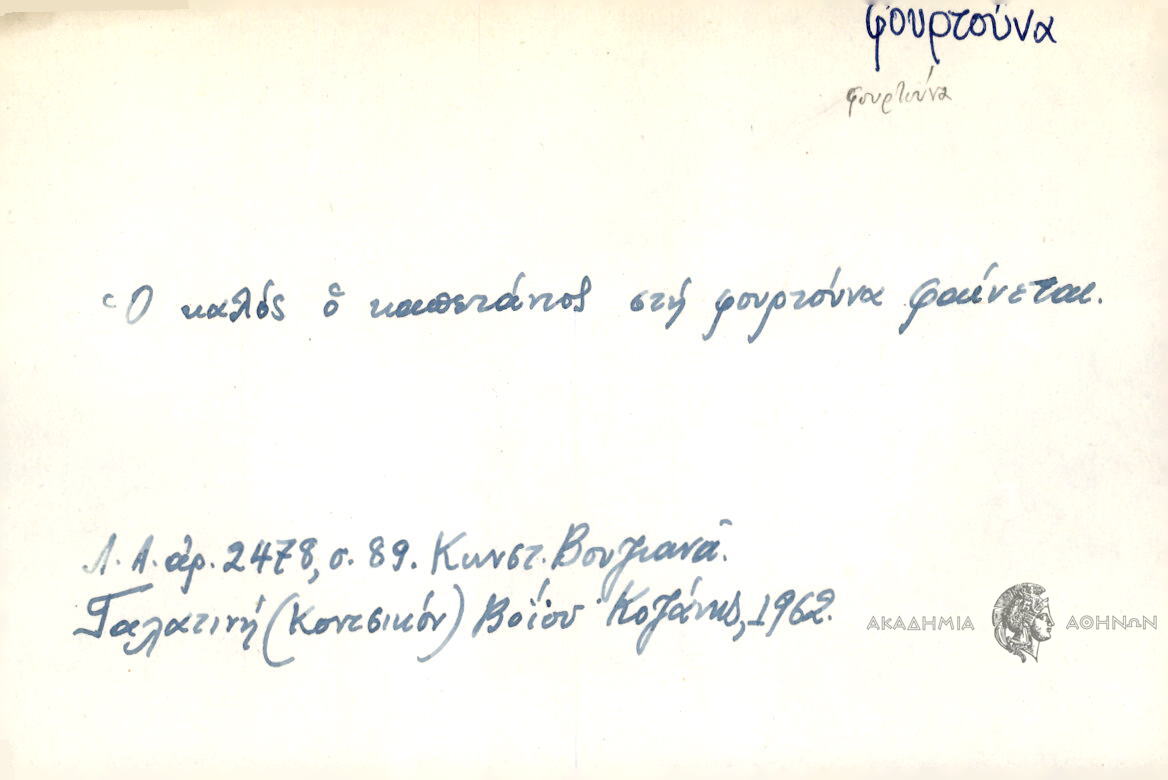 φουρτούνα
φουρτούνα
Ὁ καλός ὁ καπετάνιος στή φουρτούνα φαίνεται.
Λ.Α. ἀρ. 2478, σ. 89. Κωνστ.
Γαλατινή (Κοντσικόν) Βοΐου Κοζάνης, 1962.
ΑΚΑΔΗΜΙΑ ΑΘΗΝΩΝ